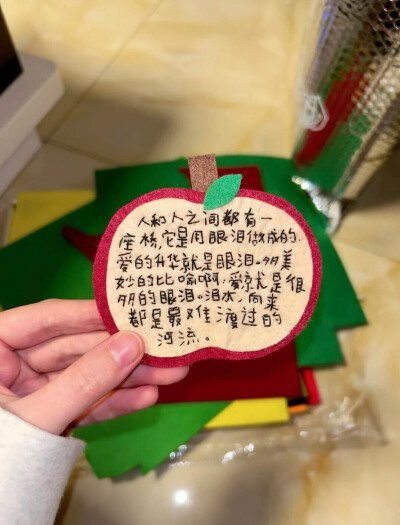 人和人之间都有一
座桥，它是用眼泪做成的
爱的升华就是眼泪。多美
妙的比喻啊，爱就是很
多的眼泪。泪水，向来
都是最难渡过的
河流。